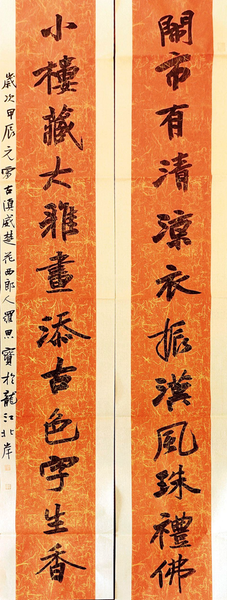 閙市有清涼衣振漢風珠禮佛
小樓藏大雅畫添古色字生香
歲次甲辰元宵古滇威楚花西郎人羅思寶於龍江北岸